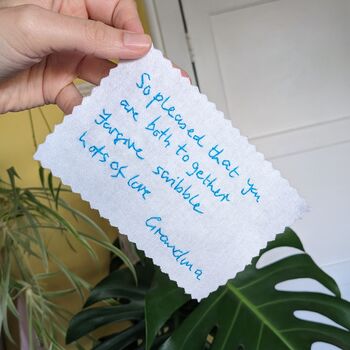 So pleased that you
are both together
Forgive scribble
Lots of love
Grandma